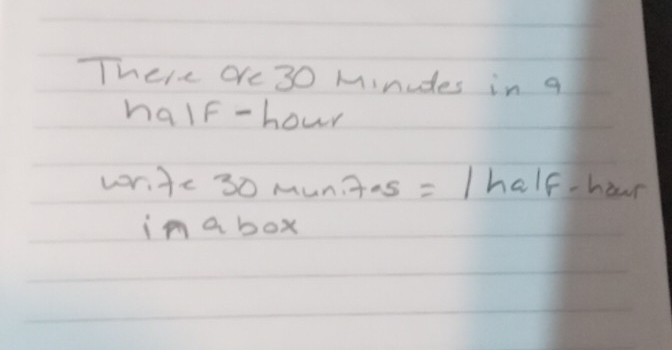 There are 30 Minutes in a
half-hour
write 30 munites = 1 half-hour
in a box